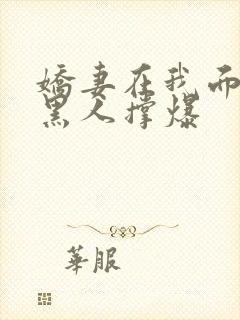 嬌妻在我而
黑人撐爆
華服